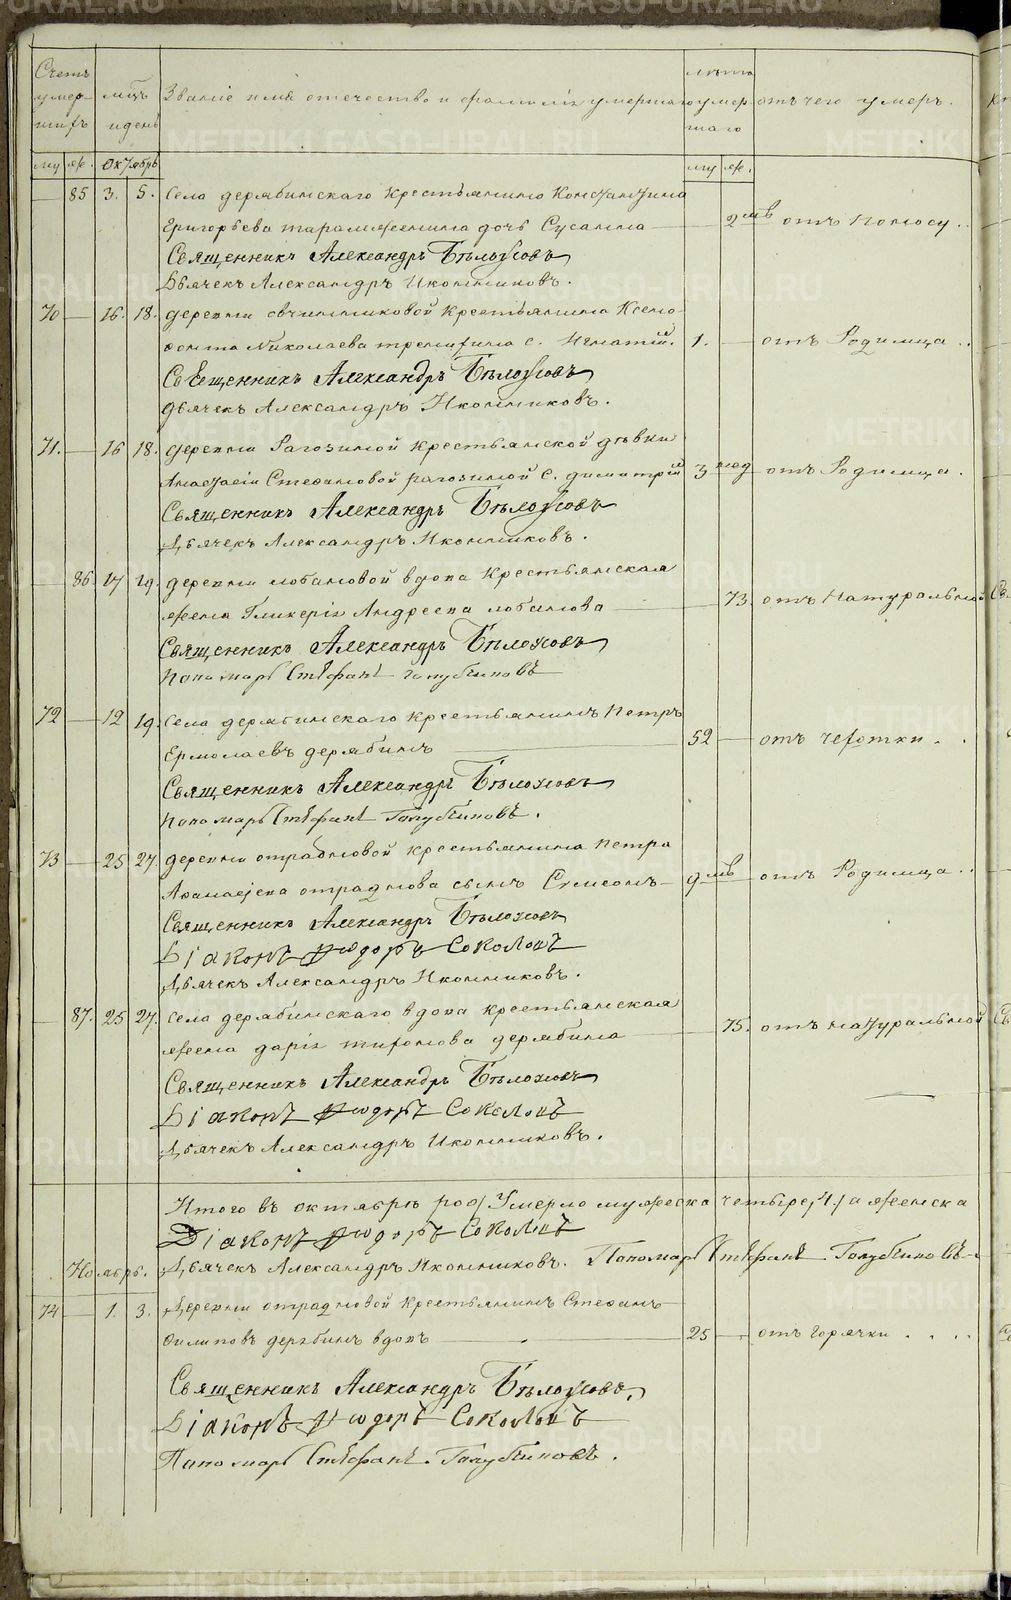 Счетъ умершихъ
мцъ и день
Званіе имя отечество и фамилія умершаго
лѣта умершаго
отъ чего умеръ.
му же.
Октябрь
му же.
85 3. 5. Села дерябинскаго крестьянина Константина
Григорьева дочь Сусанна
2 мѣ отъ поносу..
Священникъ Александръ Бѣлоусовъ
Дьячекъ Александръ Иконниковъ.
70 16. 18. деревни овчинниковой крестьянина Ксено-
фонта Николаева с. Игнатій. 1. отъ Родимца..
Священникъ Александръ Бѣлоусовъ
Дьячекъ Александръ Иконниковъ.
71. 16 18. деревни Рагозиной крестьянской дѣвки
Анастасіи Стефановой рагозиной с. димитрій 3 нед отъ Родимца.
Священникъ Александръ Бѣлоусовъ
Дьячекъ Александръ Иконниковъ.
86 17 19. деревни лобановой вдова крестьянская
жена Гликерія Андреева лобанова 73. отъ натуральной
Священникъ Александръ Бѣлоусовъ
Пономарь Стефанъ Голубчиковъ
72 12 19. Села дерябинскаго крестьянинъ Петръ
Ермолаевъ дерябинъ 52 отъ чехотки..
Священникъ Александръ Бѣлоусовъ
Пономарь Стефанъ Голубчиковъ.
73 25 27. деревни отрадновой крестьянина Петра
Афанасьева отраднова сынъ Симеонъ 9 мѣ отъ Родимца..
Священникъ Александръ Бѣлоусовъ
Діаконъ Ѳіодоръ Соколовъ
Дьячекъ Александръ Иконниковъ.
87. 25 27. Села дерябинскаго вдова крестьянская
жена дарія тихонова дерябина 75. отъ натуральной
Священникъ Александръ Бѣлоусовъ
Діаконъ Ѳіодоръ Соколовъ
Дьячекъ Александръ Иконниковъ.
Итого въ октябрѣ Умерло мужеска четыре, 4, а женска
Діаконъ Ѳіодоръ Соколовъ
Дьячекъ Александръ Иконниковъ. Пономарь Стефанъ Голубчиковъ
Ноябрь.
74 1. 3. Деревни отрадновой крестьянинъ Стефанъ
Филиповъ дерябинъ вдовъ 25 отъ горячки....
Священникъ Александръ Бѣлоусовъ.
Діаконъ Ѳіодоръ Соколовъ
Пономарь Стефанъ Голубчиковъ.
METRIKI.GASO-URAL.RU